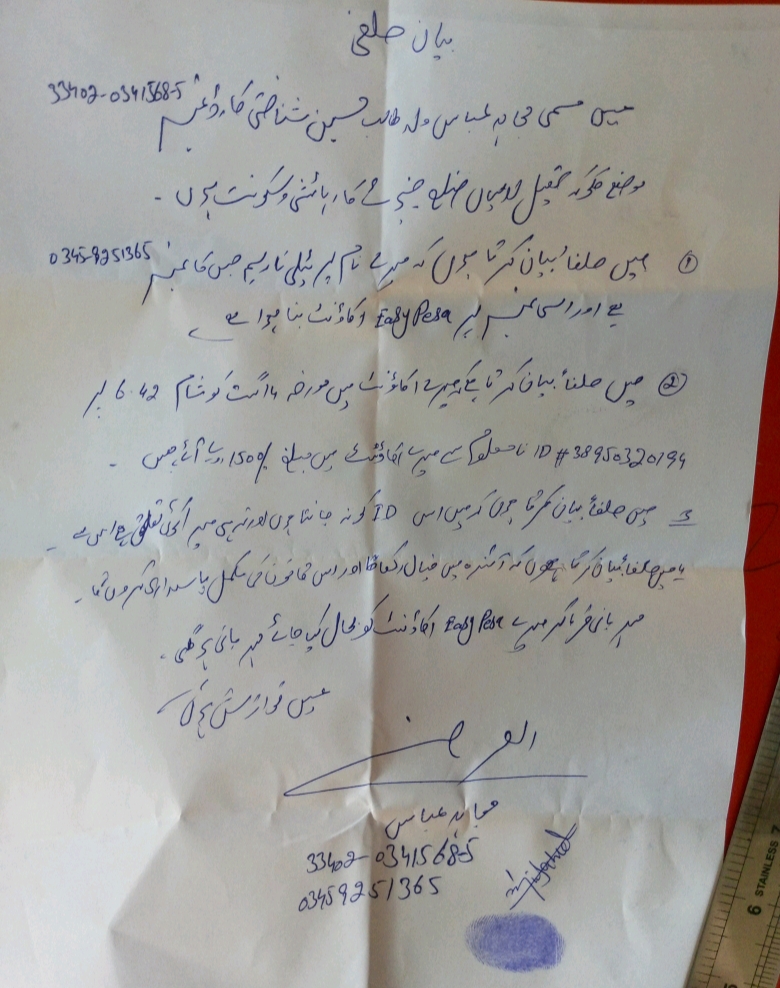 بیان حلفی
میں مسمی مجاہد عباس ولد طالب حسین شناختی کارڈ نمبر 33402-0341568-5
موضع تحصیل لالیاں ضلع چنیوٹ کا رہائشی و سکونت ہوں ۔
① میں حلفاً بیان کرتا ہوں کہ میرے نام پر ٹیلی نار سم جس کا نمبر 0345-9251365
ہے اور اسی نمبر پر Easy Pesa اکاؤنٹ بنا ہوا ہے
② میں حلفاً بیان کرتا ہے کہ میرے اکاؤنٹ میں مورخہ 14 اگست کو شام 6.42 پر
ID # 38950320194 نامعلوم سے میرے اکاؤنٹ میں مبلغ 1500/ روپے آئے ہیں ۔
3 میں حلفاً بیان کرتا ہوں کہ میں اس ID کو نہ جانتا ہوں اور نہ ہی میرا کوئی تعلق ہے اس سے ۔
یا میں حلفاً بیان کرتا ہوں کہ آئندہ میں خیال رکھوں گا اور اس قانون کی مکمل پاسداری کروں گا ۔
مہربانی فرما کر میرے Easy Pesa اکاؤنٹ کو بحال کیا جائے مہربانی ہو گئی ۔
عین نوازش ہوگی
العرض
مجاہد عباس
33402-0341568-5
03459251365
Mujahid